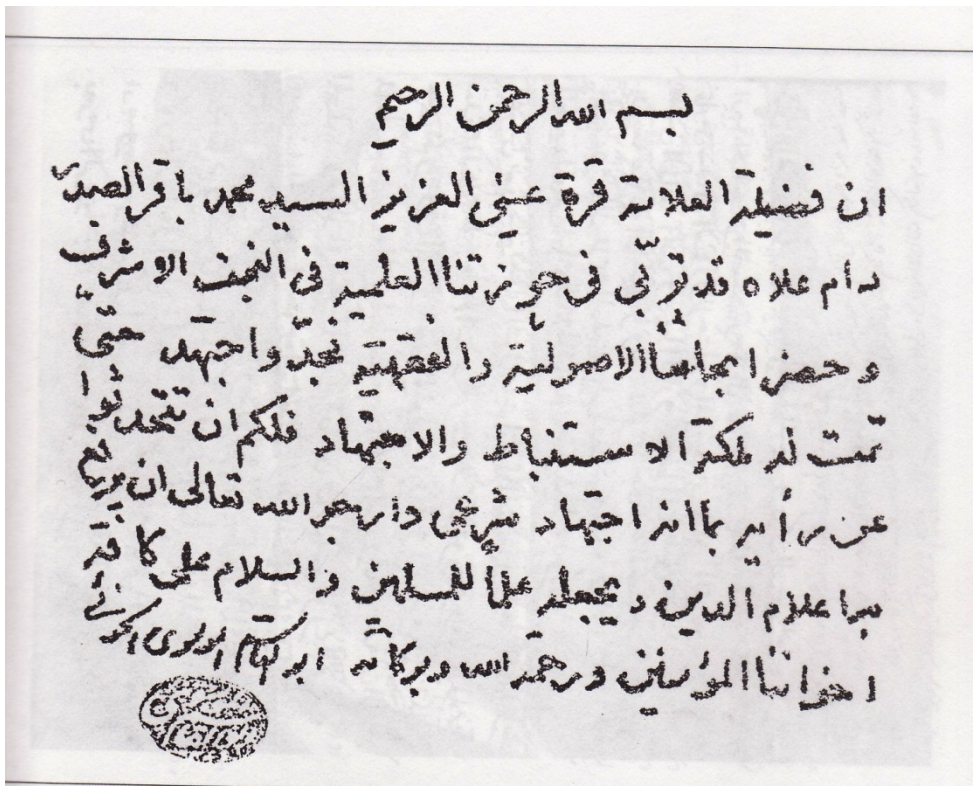 بسم الله الرحمن الرحيم
ان فضيلة العلامة قرة عيني العزيز السيد محمد باقر الصدر
دام علاه قد تربّى في حوزتنا العلمية في النجف الاشرف
و حضر ابحاثنا الاصولية والفقهية فجدّ واجتهد حتّى
تمت له ملكة الاستنباط والاجتهاد فلكم ان تتحدثوا
عن رأيه بما انه اجتهاد شرعي وارجو الله تعالى ان يرفع
به اعلام الدين و يجعله علماً للمسلمين والسلام على كافة
اخواننا المؤمنين ورحمة الله وبركاته ابو القاسم الموسوي الخوئي